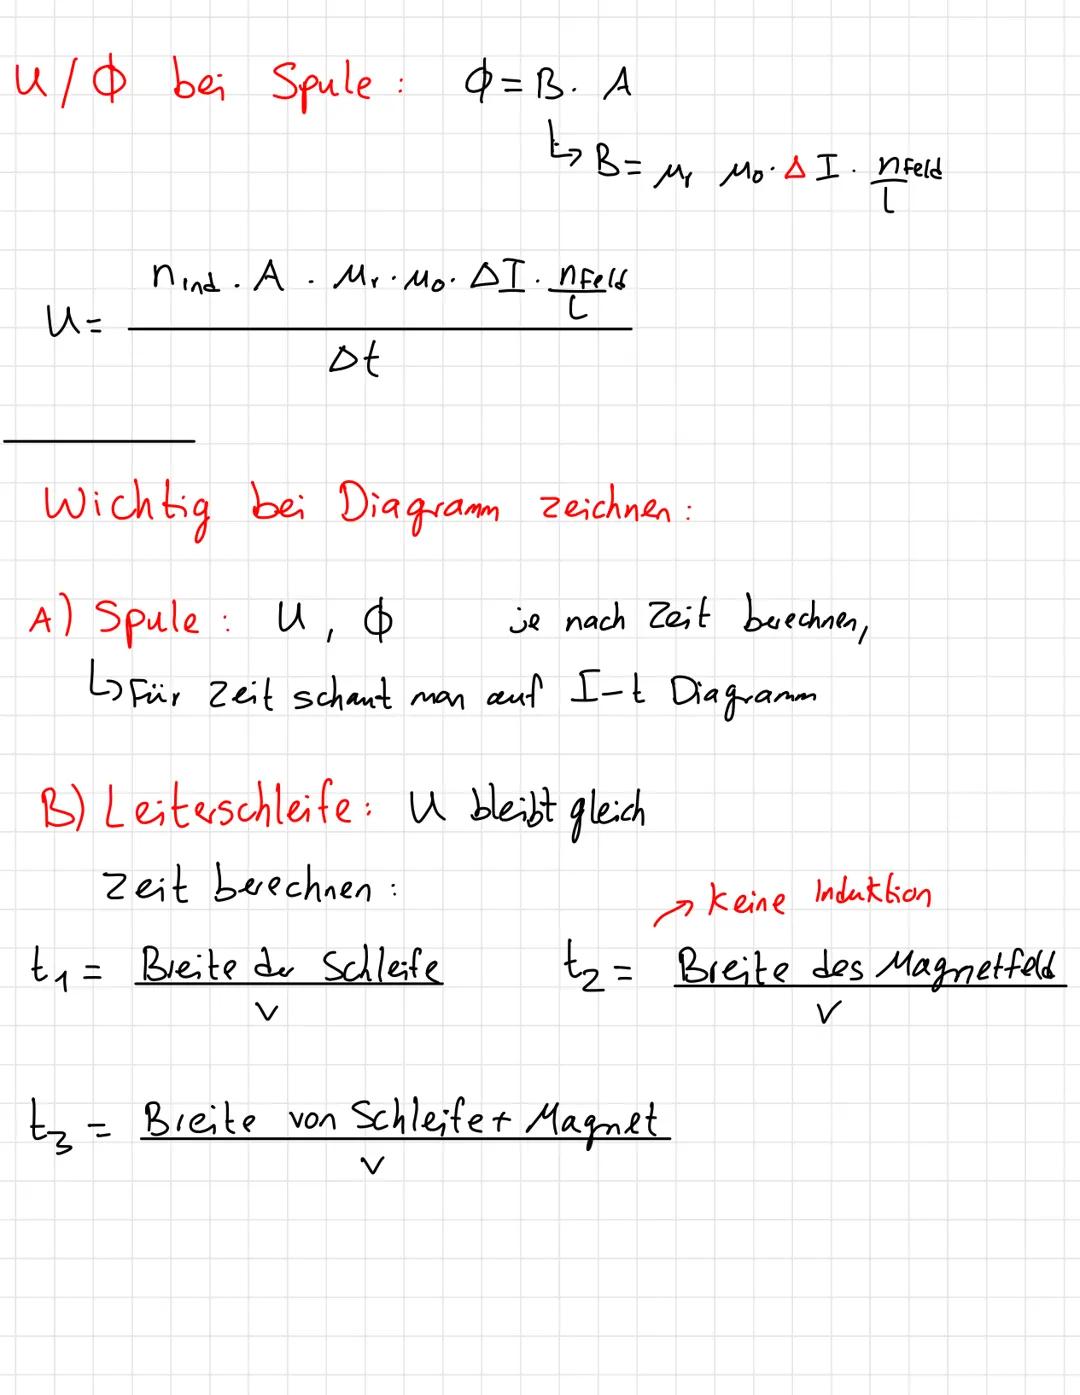 U/Φ bei Spule: Φ = B · A
↳ B = μr μ0 · Δ I · nFeld/l
U = (nind · A · μr · μ0 · ΔI · nFeld/l) / Δt
Wichtig bei Diagramm zeichnen:
A) Spule: U, Φ je nach Zeit berechnen,
↳ Für Zeit schaut man auf I-t Diagramm
B) Leiterschleife: U bleibt gleich
Zeit berechnen:
→ keine Induktion
t1 = Breite der Schleife / v t2 = Breite des Magnetfeld / v
t3 = Breite von Schleife + Magnet / v